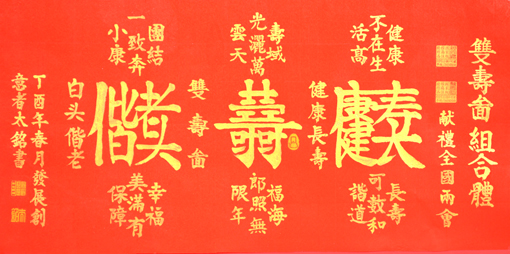 雙壽啚 組合體
献禮全國兩會
健康
不在生
活高
長壽
可数和
諧道
健康長壽
壽域
光灑萬
雲天
福海
照無
限年
雙壽啚
團結
一致奔
小康
幸福
美滿有
保障
白头偕老
丁酉年春月發展創
意者太銘書